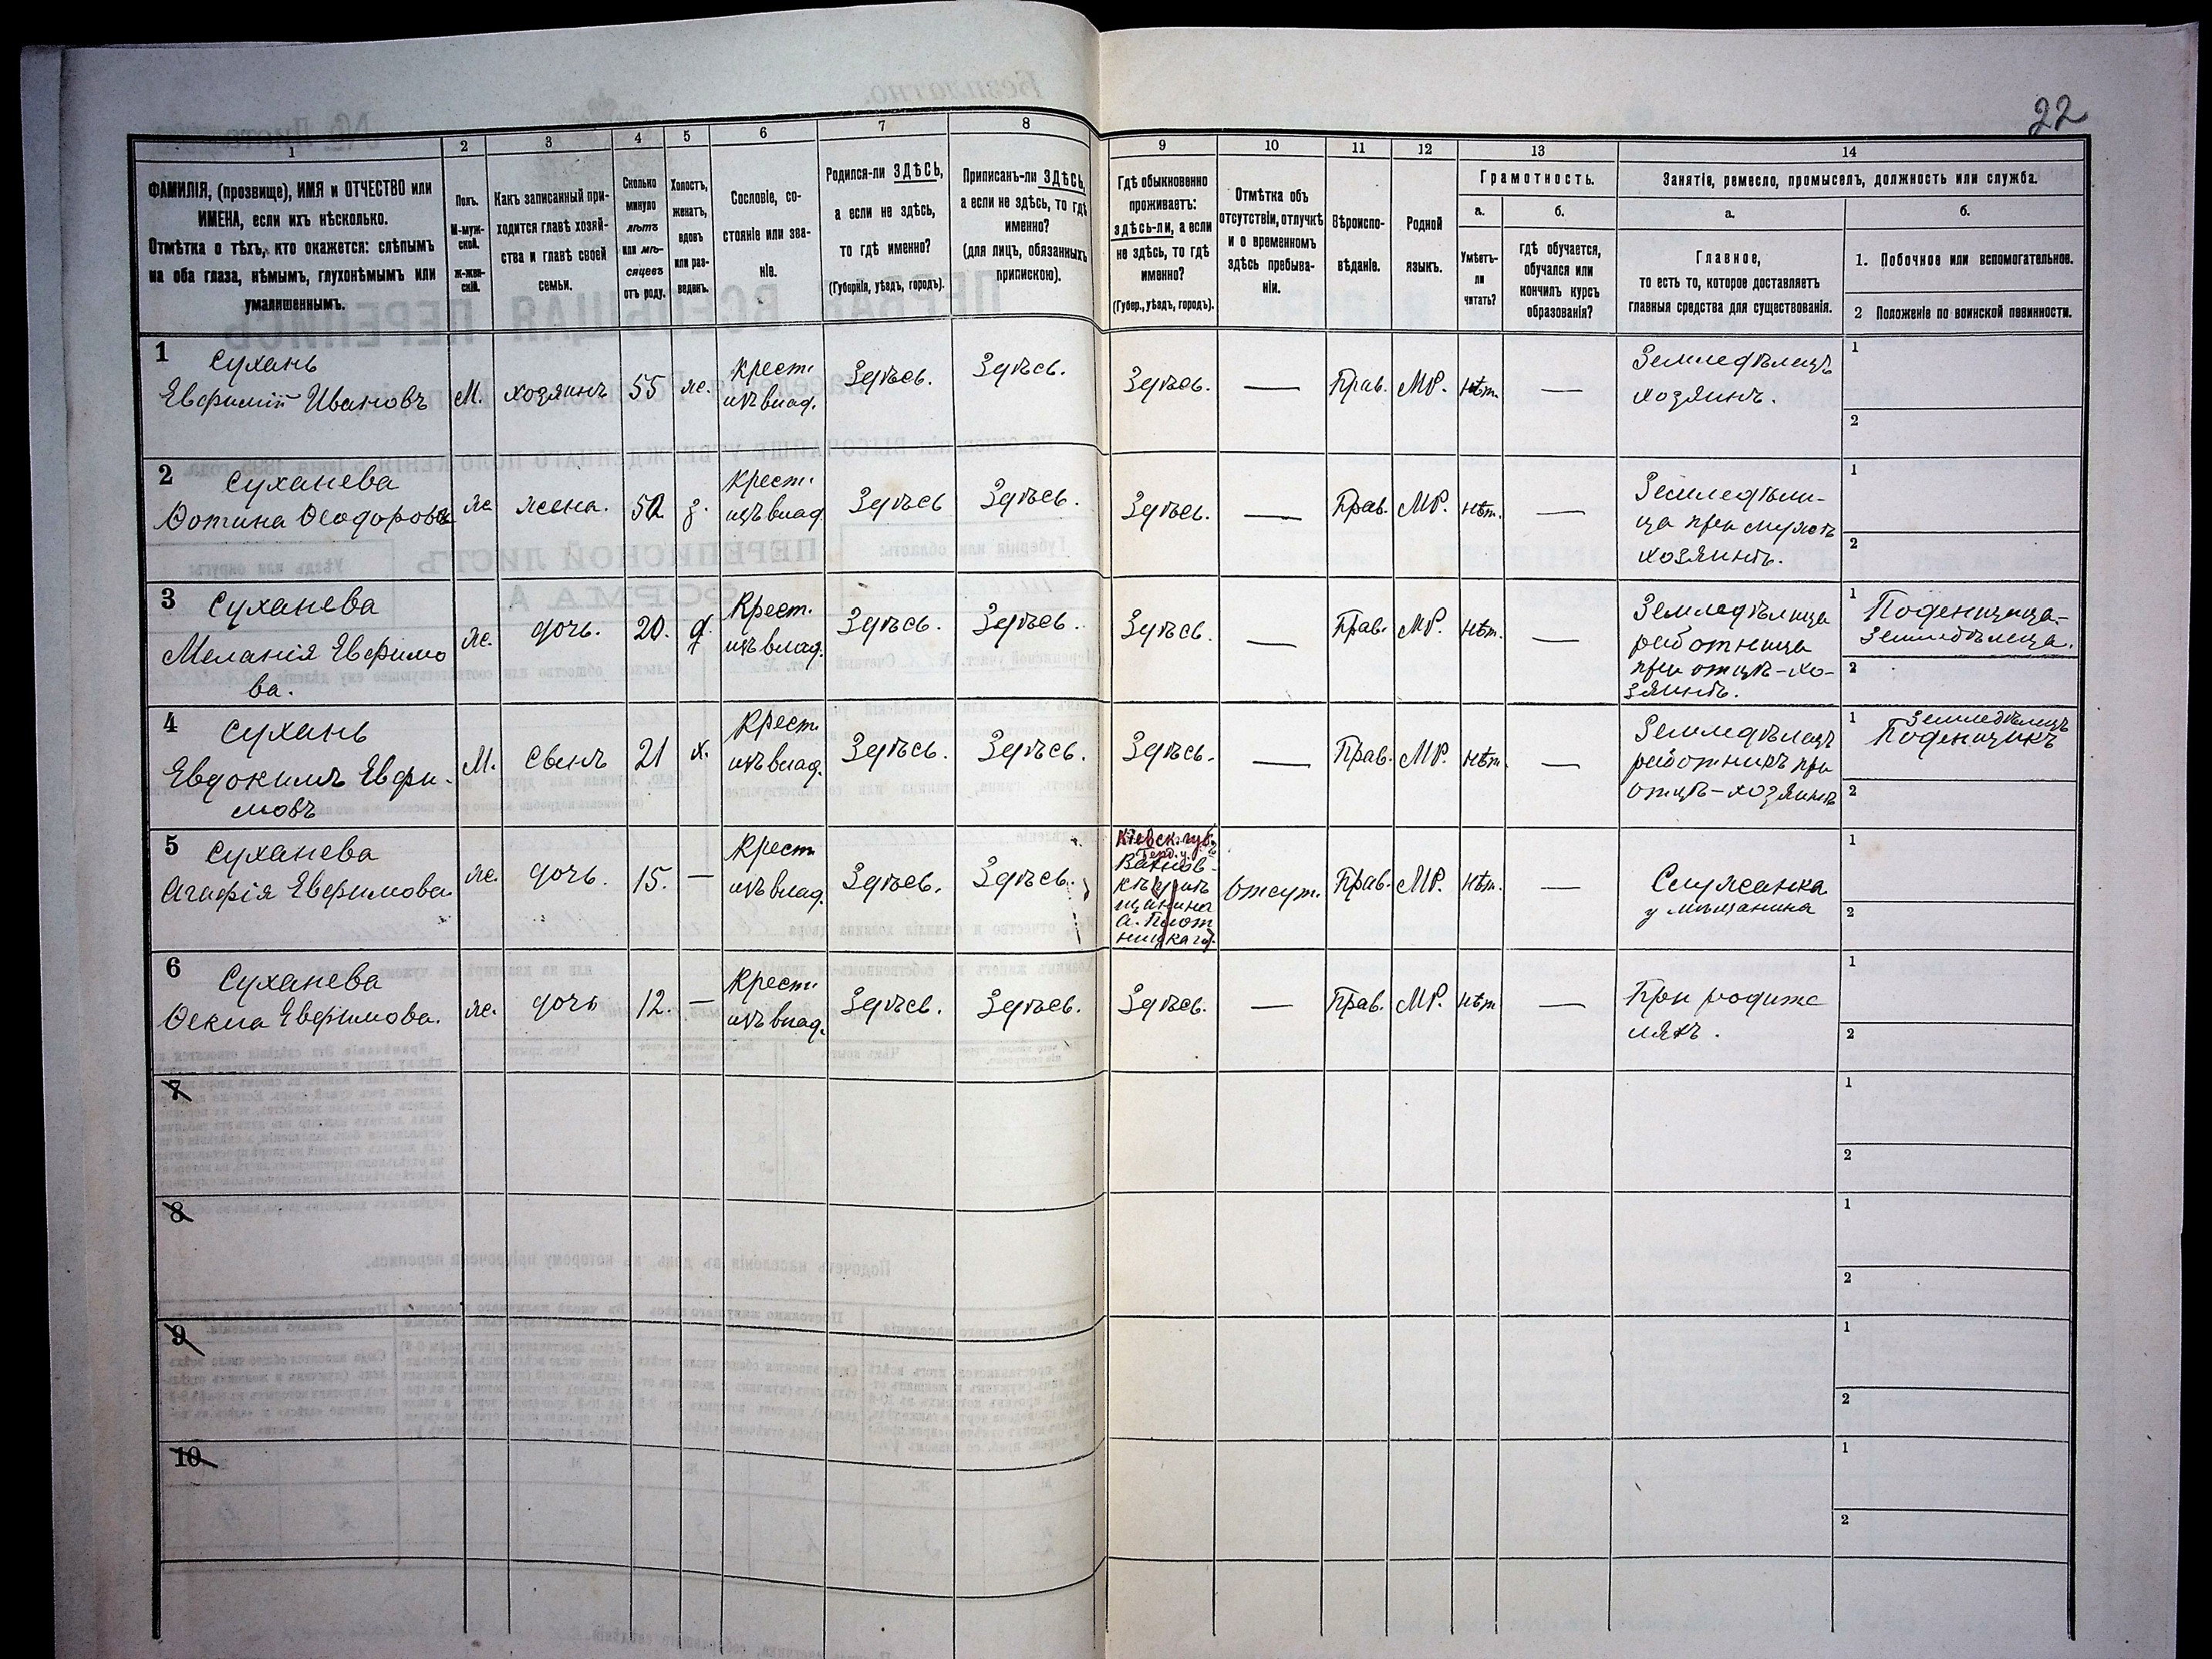 22
1
2
3
4
5
6
7
8
9
10
11
12
13
14
ФАМИЛІЯ, (прозвище), ИМЯ и ОТЧЕСТВО или
ИМЕНА, если ихъ нѣсколько.
Отмѣтка о тѣхъ, кто окажется: слѣпымъ
на оба глаза, нѣмымъ, глухонѣмымъ или
умалишеннымъ.
Полъ.
М-муж-
ской.
ж-жен-
скій.
Какъ записанный при-
ходится главѣ хозяй-
ства и главѣ своей
семьи.
Сколько
минуло
лѣтъ
или мѣ-
сяцевъ
отъ роду.
Холостъ,
женатъ,
вдовъ
или раз-
веденъ.
Сословіе, со-
стояніе или зва-
ніе.
Родился-ли ЗДѢСЬ,
а если не здѣсь,
то гдѣ именно?
(Губернія, уѣздъ, городъ).
Приписанъ-ли ЗДѢСЬ,
а если не здѣсь, то гдѣ
именно?
(для лицъ, обязанныхъ
припискою).
Гдѣ обыкновенно
проживаетъ:
здѣсь-ли, а если
не здѣсь, то гдѣ
именно?
(Губер., уѣздъ, городъ).
Отмѣтка объ
отсутствіи, отлучкѣ
и о временномъ
здѣсь пребыва-
ніи.
Вѣроиспо-
вѣданіе.
Родной
языкъ.
Грамотность.
а.
Умѣетъ-
ли
читать?
б.
гдѣ обучается,
обучался или
кончилъ курсъ
образованія?
Занятіе, ремесло, промыселъ, должность или служба.
а.
Главное,
то есть то, которое доставляетъ
главныя средства для существованія.
б.
1. Побочное или вспомогательное.
2 Положеніе по воинской повинности.
1
Сухань
Евфимій Ивановъ
М.
хозяинъ
55
ж.
крест.
изъ влад.
Здѣсь.
Здѣсь.
Здѣсь.
—
Прав.
МР.
нѣт.
—
Земледѣлецъ
хозяинъ.
1
2
2
Суханева
Ѳотина Ѳеодорова
ж
жена.
50
з.
Крест.
изъ влад
Здѣсь
Здѣсь.
Здѣсь.
—
Прав.
МР.
нѣт.
—
Земледѣли-
ца при мужѣ
хозяинѣ.
1
2
3
Суханева
Меланія Евфимо
ва.
ж.
дочь.
20.
д.
Крест.
изъ влад.
Здѣсь.
Здѣсь.
Здѣсь.
—
Прав.
МР.
нѣт.
—
Земледѣлица
работница
при отцѣ-хо-
зяинѣ.
1
Поденщица-
Земледѣлица.
2
4
Сухань
Евдокимъ Евфи-
мовъ
М.
Сынъ
21
х.
Крест.
изъ влад.
Здѣсь.
Здѣсь.
Здѣсь.
—
Прав.
МР.
нѣт.
—
Земледѣлецъ
работникъ при
отцѣ-хозяинѣ
1
Земледѣлецъ
Поденщикъ
2
5
Суханева
Агафія Евфимова
ж.
дочь.
15.
—
Крест
изъ влад.
Здѣсь.
Здѣсь.
Кіевск. губ.
Отсут.
Прав.
МР.
нѣт.
—
Служанка
у мѣщанина
1
2
6
Суханева
Ѳекла Евфимова.
ж.
дочь
12.
—
Крест.
изъ влад.
Здѣсь.
Здѣсь.
Здѣсь.
—
Прав.
МР.
нѣт
—
При родите
ляхъ.
1
2
7
1
2
8
1
2
9
1
2
10
1
2